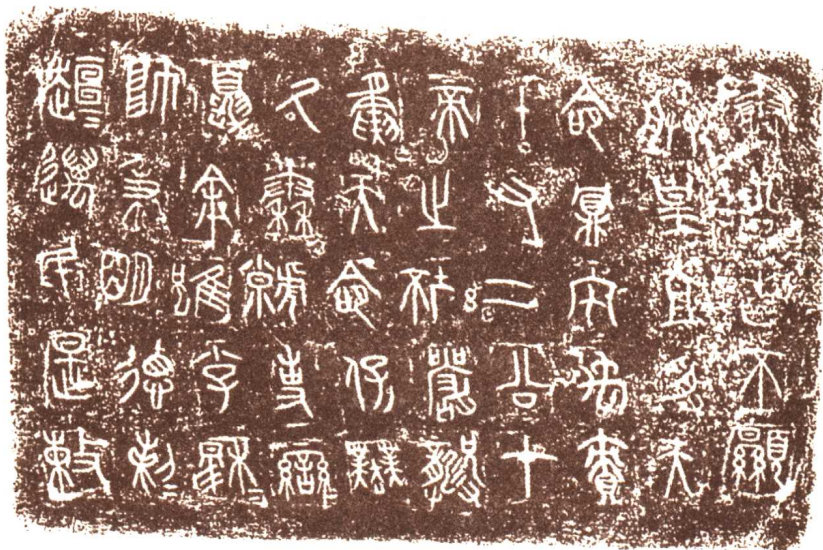 秦公曰不顯
朕皇且受天
命鼏宅禹責
十又二公才
帝之坏嚴龏
夤天命保業
氒秦虩事䜌
夏余雖小子穆＝
帥秉明德剌＝
趄＝邁民是敕